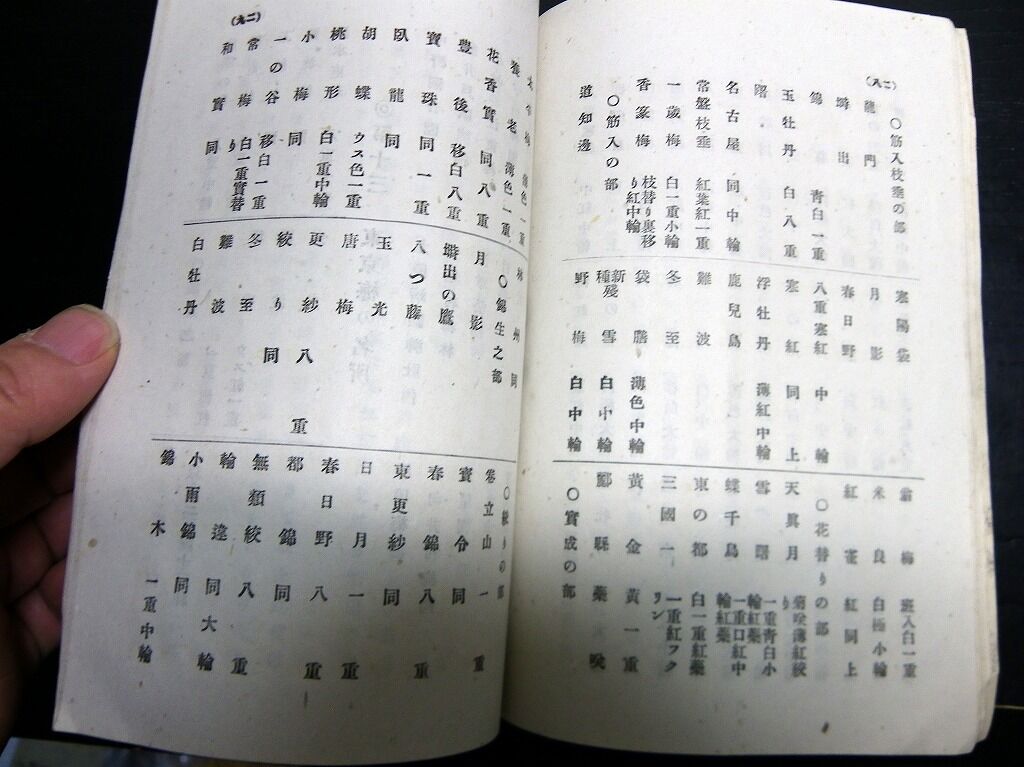 (二八)
〇筋入枝垂の部
龍門
塒出
錦 青白一重
玉牡丹 白八重
曙
名古屋 同中輪
常盤枝垂 紅葉紅一重
一歳梅 白一重小輪
香篆梅 枝替り裏移り紅中輪
〇筋入の部
道知邊
寒陽袋
月影
春日野
八重寒紅 中輪
寒紅 同上
浮牡丹 薄紅中輪
鹿兒島
難波
冬至
袋 薄色中輪
新種殘雪 白中輪
野梅 白中輪
翁梅 斑入白一重
米良 白極小輪
紅雀 紅同上
〇花替りの部
天眞月 菊咲薄紅絞り
雪曙 一重青白小輪紅蘂
蝶千鳥 一重口紅中輪紅蘂
東の都 白一重紅蘂
三國一 一重紅フクリン
黄金 黄一重
酈縣 蘂咲
〇實成の部
(二九)
養老 薄色一重
花香實 同八重
豊後 移白八重
寶珠 同一重
臥龍 同
胡蝶 ウス色一重
桃形 白一重中輪
小梅 同
一の谷 移白一重
常梅 白一重實替り
和實 同
林州 同
〇錦生之部
月影
塒出の鷹
八つ藤
玉光
唐梅
更紗 八重
絞り 同
冬至
難波
白牡丹
〇絞りの部
卷立山 一重
實令 同
春錦 八重
東更紗 同
日月 一重
春日野 八重
都錦 同
無類絞 八重
輪違 同大輪
小雨錦 同
錦木 一重中輪